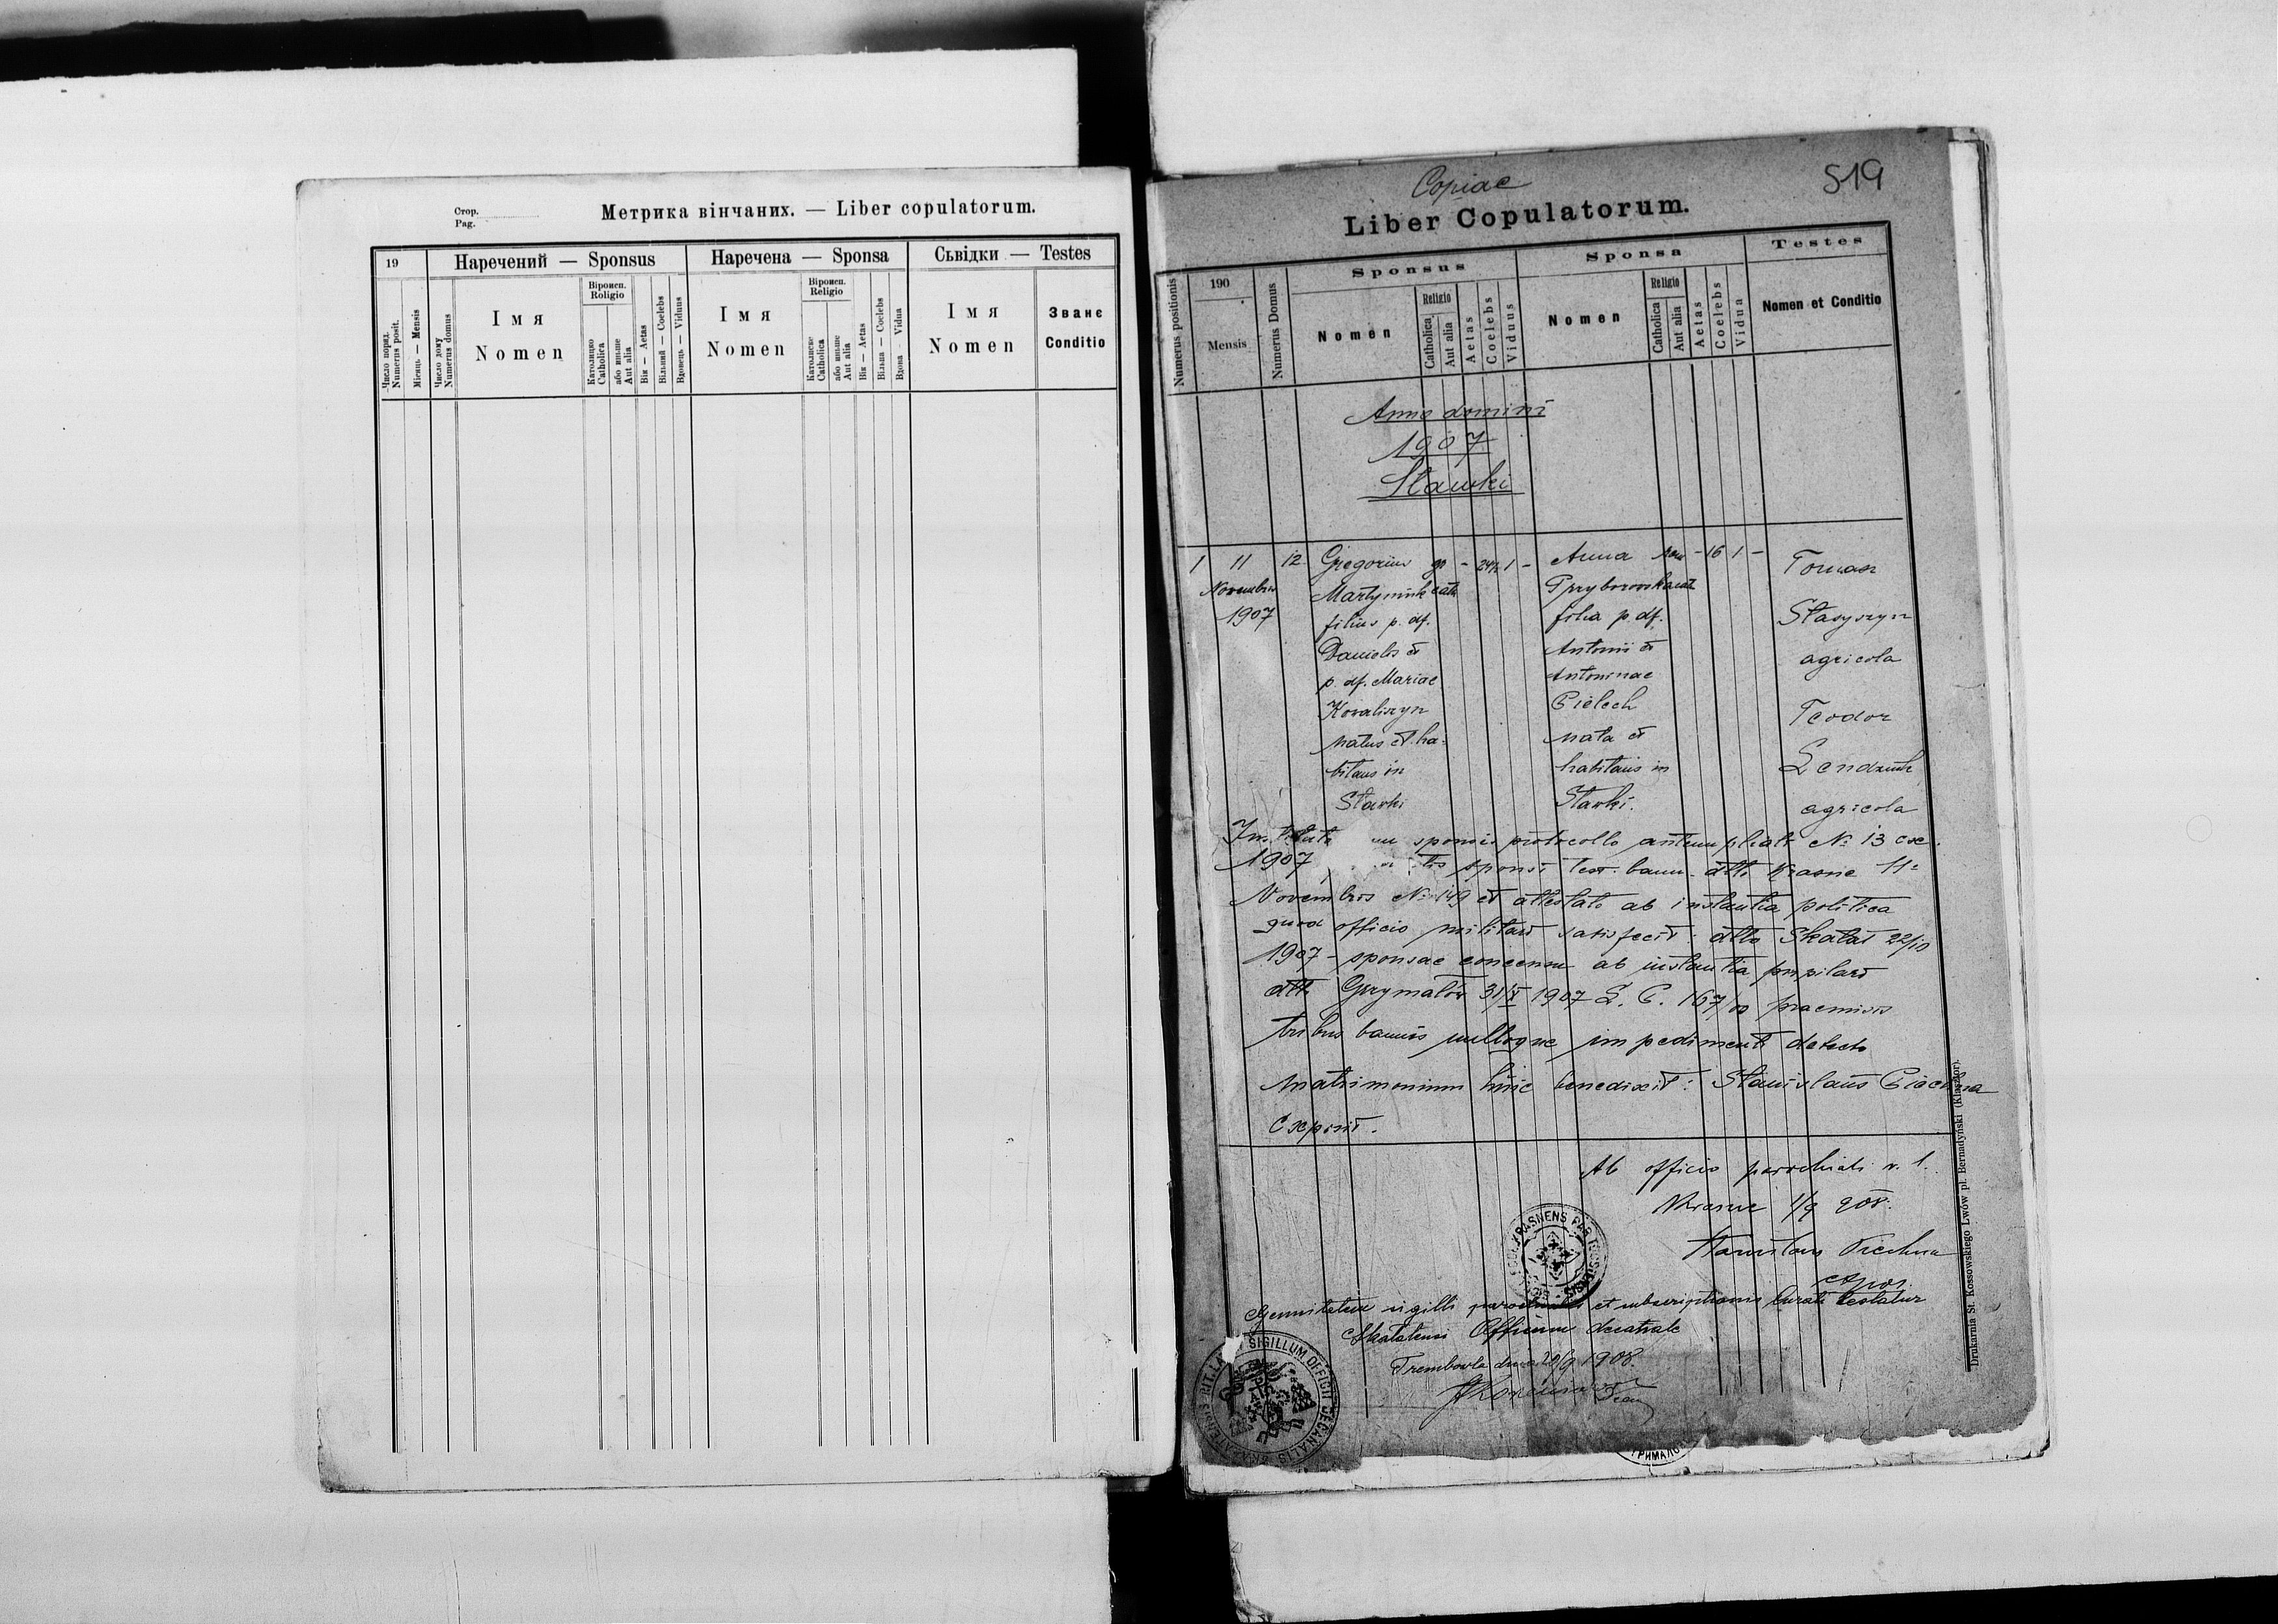 Стор.
Pag.
Метрика вінчаних. — Liber copulatorum.
19
Наречений — Sponsus
Наречена — Sponsa
Сьвідки — Testes
Число поряд.
Numerus posit.
Місяць — Mensis
Число дому
Numerus domus
Імя
Nomen
Віроисп.
Religio
Католицко
Catholica
або иньше
Aut alia
Вік — Aetas
Вільний — Coelebs
Вдовець — Viduus
Імя
Nomen
Віроисп.
Religio
Catholica
або иньше
Aut alia
Вік — Aetas
Вільна — Coelebs
Вдова Vidua
Імя
Nomen
Званє
Conditio
Copiae
519
Liber Copulatorum.
Numerus positionis
190
Mensis
Numerus Domus
Sponsus
Nomen
Religio
Catholica
Aut alia
Aetas
Coelebs
Viduus
Sponsa
Nomen
Religio
Catholica
Aut alia
Aetas
Coelebs
Vidua
Testes
Nomen et Conditio
Anno domini
1907
1
11
Novembris
1907
12
Gregorius
filius p. df.
Danielis et
p. df. Mariae
Kovaliszyn
natus et ha-
bitans in
Stawki
- 24½ 1 -
Anna
filia p. df.
Antonii et
Antoninae
Cielech
nata et
habitans in
Stawki.
- 16 1 -
Tomasz
Stasyszyn
agricola
Teodor
agricola
sponsis protocollo No 13
1907 sponsi test. bann. dtto Krasne 11
Novembris No 149 et attestato ab instantia politica
quod officio militari satisfecit dtto Skałat 22/10
1907 - sponsae ab instantia pupilari
dtto Grzymałów 1907 L. C. praemissis
tribus bannis nulloque impedimento detecto
matrimonium hinc benedixit: Stanislaus
Exposit.
Ab officio parochiali r. l.
Krasne 1/9 908.
expos.
sigilli et subscriptionis Curati testatur
Officium decanale
Trembowla 1908
SIGILLUM OFFICII DECANALIS
Drukarnia St. Kossowskiego Lwów pl. Bernadyński (Klasztor).